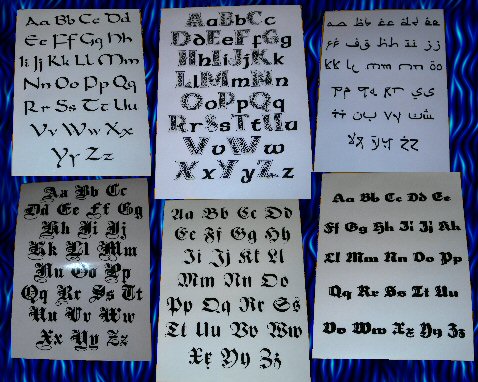 Aa Bb Cc Dd
Ee Ff Gg Hh
Ii Jj Kk Ll Mm
Nn Oo Pp Qq
Rr Ss Tt Uu
Vv Ww Xx
Yy Zz
AaBbCc
DdEeFfGg
HhIiJjKk
LlMmNn
OoPpQq
RrSsTtUu
VvWw
XxYyZz
Aa Bb Cc
Dd Ee Ff Gg
Hh Ii Jj
Kk Ll Mm
Nn Oo Pp
Qq Rr Ss Tt
Uu Vv Ww
Xx Yy Zz
Aa Bb Cc Dd
Ee Ff Gg Hh
Ii Jj Kk Ll
Mm Nn Oo
Pp Qq Rr Ss
Tt Uu Vv Ww
Xx Yy Zz
Aa Bb Cc Dd Ee
Ff Gg Hh Ii Jj Kk
Ll Mm Nn Oo Pp
Qq Rr Ss Tt Uu
Vv Ww Xx Yy Zz